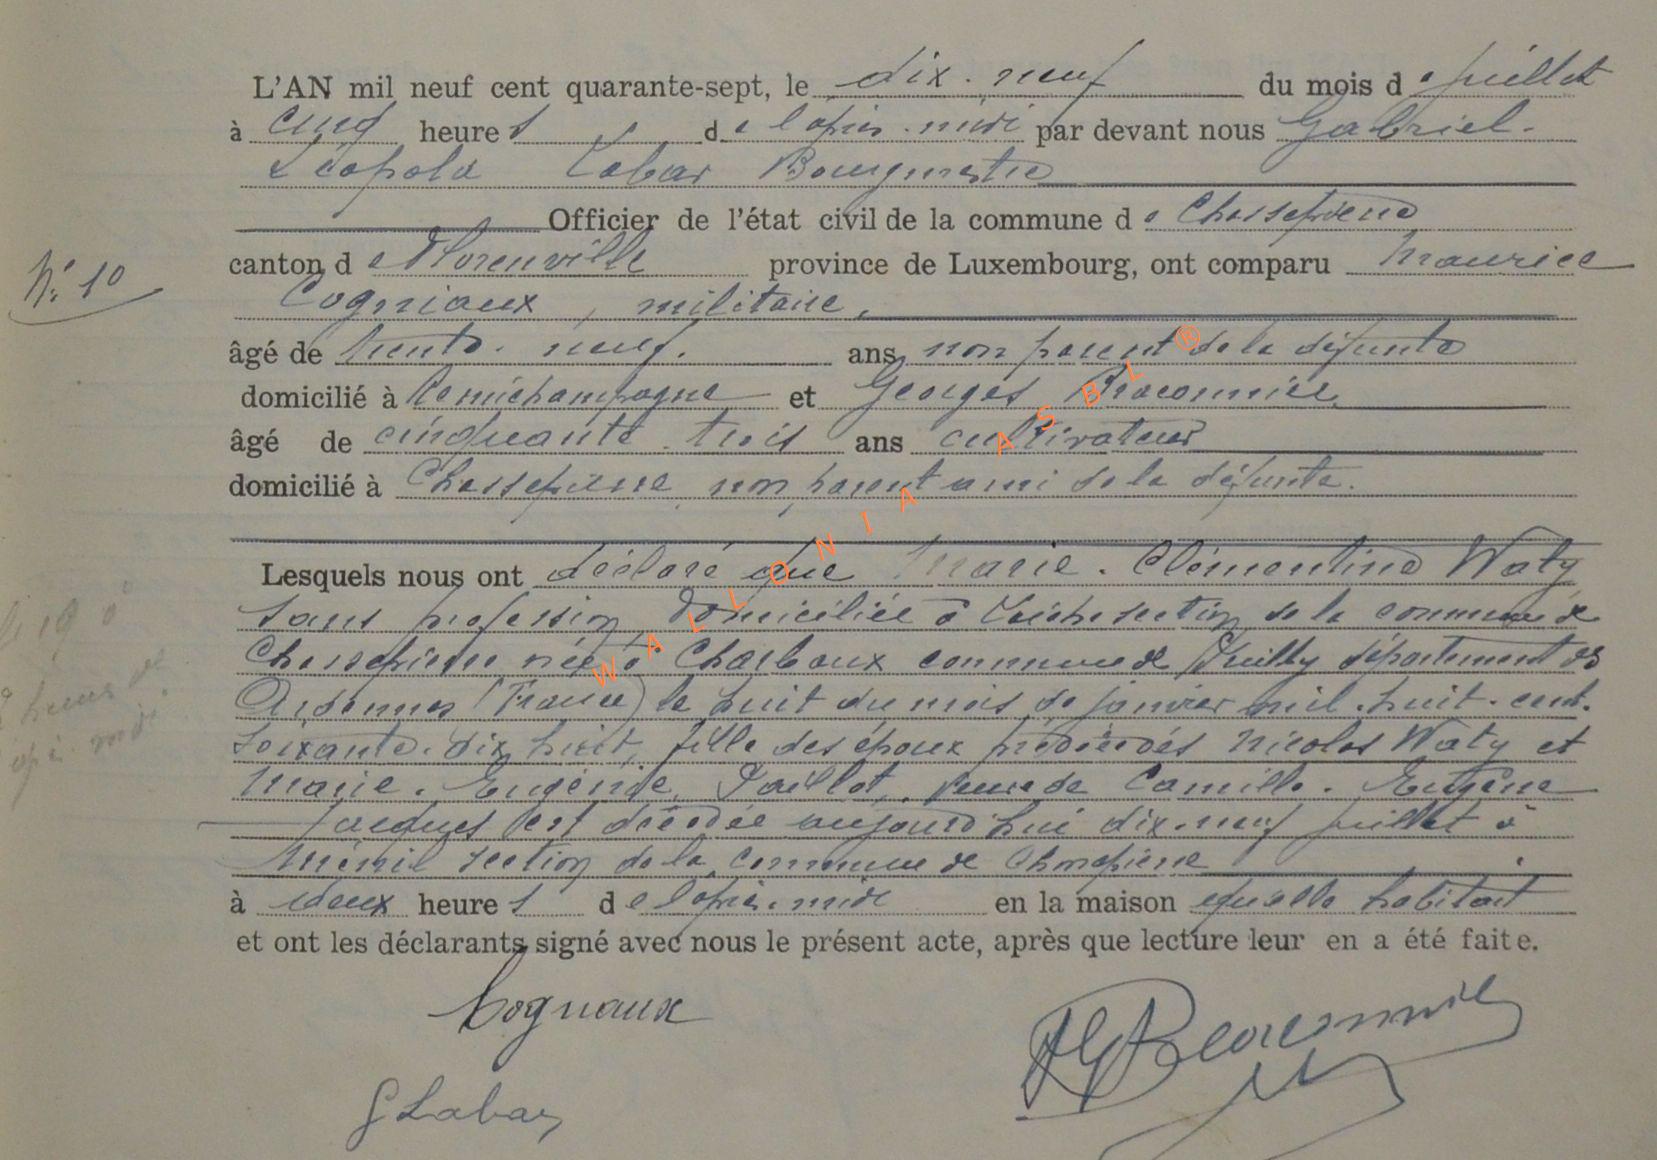 L'AN mil neuf cent quarante-sept, le dix-neuf du mois de juillet
à cinq heures de l'après-midi par devant nous Gabriel-
Léopold Labar Bourgmestre
Officier de l'état civil de la commune de Chassepierre
canton de Florenville province de Luxembourg, ont comparu Maurice
N° 10
Cogniaux, militaire,
âgé de trente-neuf. ans non parent de la défunte
domicilié à Remichampagne et Georges Braconnier
âgé de cinquante-trois ans cultivateur
domicilié à Chassepierre, non parent ami de la défunte.
Lesquels nous ont déclaré que Marie-Clémentine Waty
sans profession domiciliée à Laiche section de la commune de
Chassepierre née à Charbeaux commune de Puilly département des
Ardennes (France) le huit du mois de janvier mil-huit-cent-
soixante-dix huit, fille des époux prédécédés Nicolas Waty et
Marie-Eugénie veuve de Camille-Eugène
Jacques est décédée aujourd'hui dix-neuf juillet à
Ménil section de la commune de Chassepierre
à deux heures de l'après-midi en la maison qu'elle habitait
et ont les déclarants signé avec nous le présent acte, après que lecture leur en a été faite.
Cogniaux
G Braconnier
G Labar
WALLONIA ASBL ®